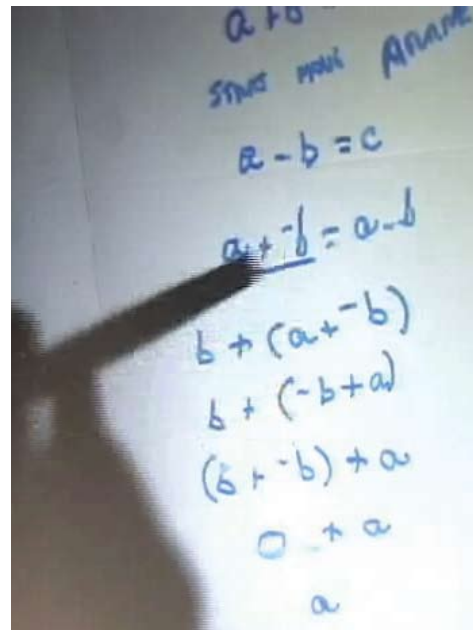 a + b
a - b = c
a + -b = a - b
b + (a + -b)
b + (-b + a)
(b + -b) + a
0 + a
a